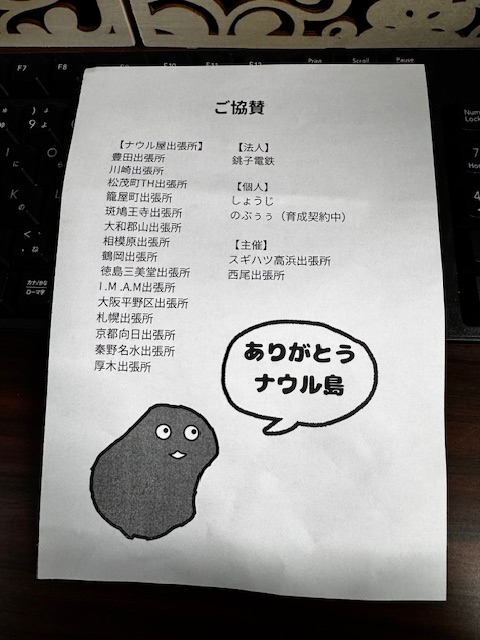 ご協賛
【ナウル屋出張所】
豊田出張所
川崎出張所
松茂町TH出張所
籠屋町出張所
斑鳩王寺出張所
大和郡山出張所
相模原出張所
鶴岡出張所
徳島三美堂出張所
I.M.A.M出張所
大阪平野区出張所
札幌出張所
京都向日出張所
秦野名水出張所
厚木出張所
【法人】
銚子電鉄
【個人】
しょうじ
のぶぅぅ（育成契約中）
【主催】
スギハツ高浜出張所
西尾出張所
ありがとう
ナウル島
F7
F8
F10
F11
F12
Print
Scroll
Pause
カナ/かな
ローマ字